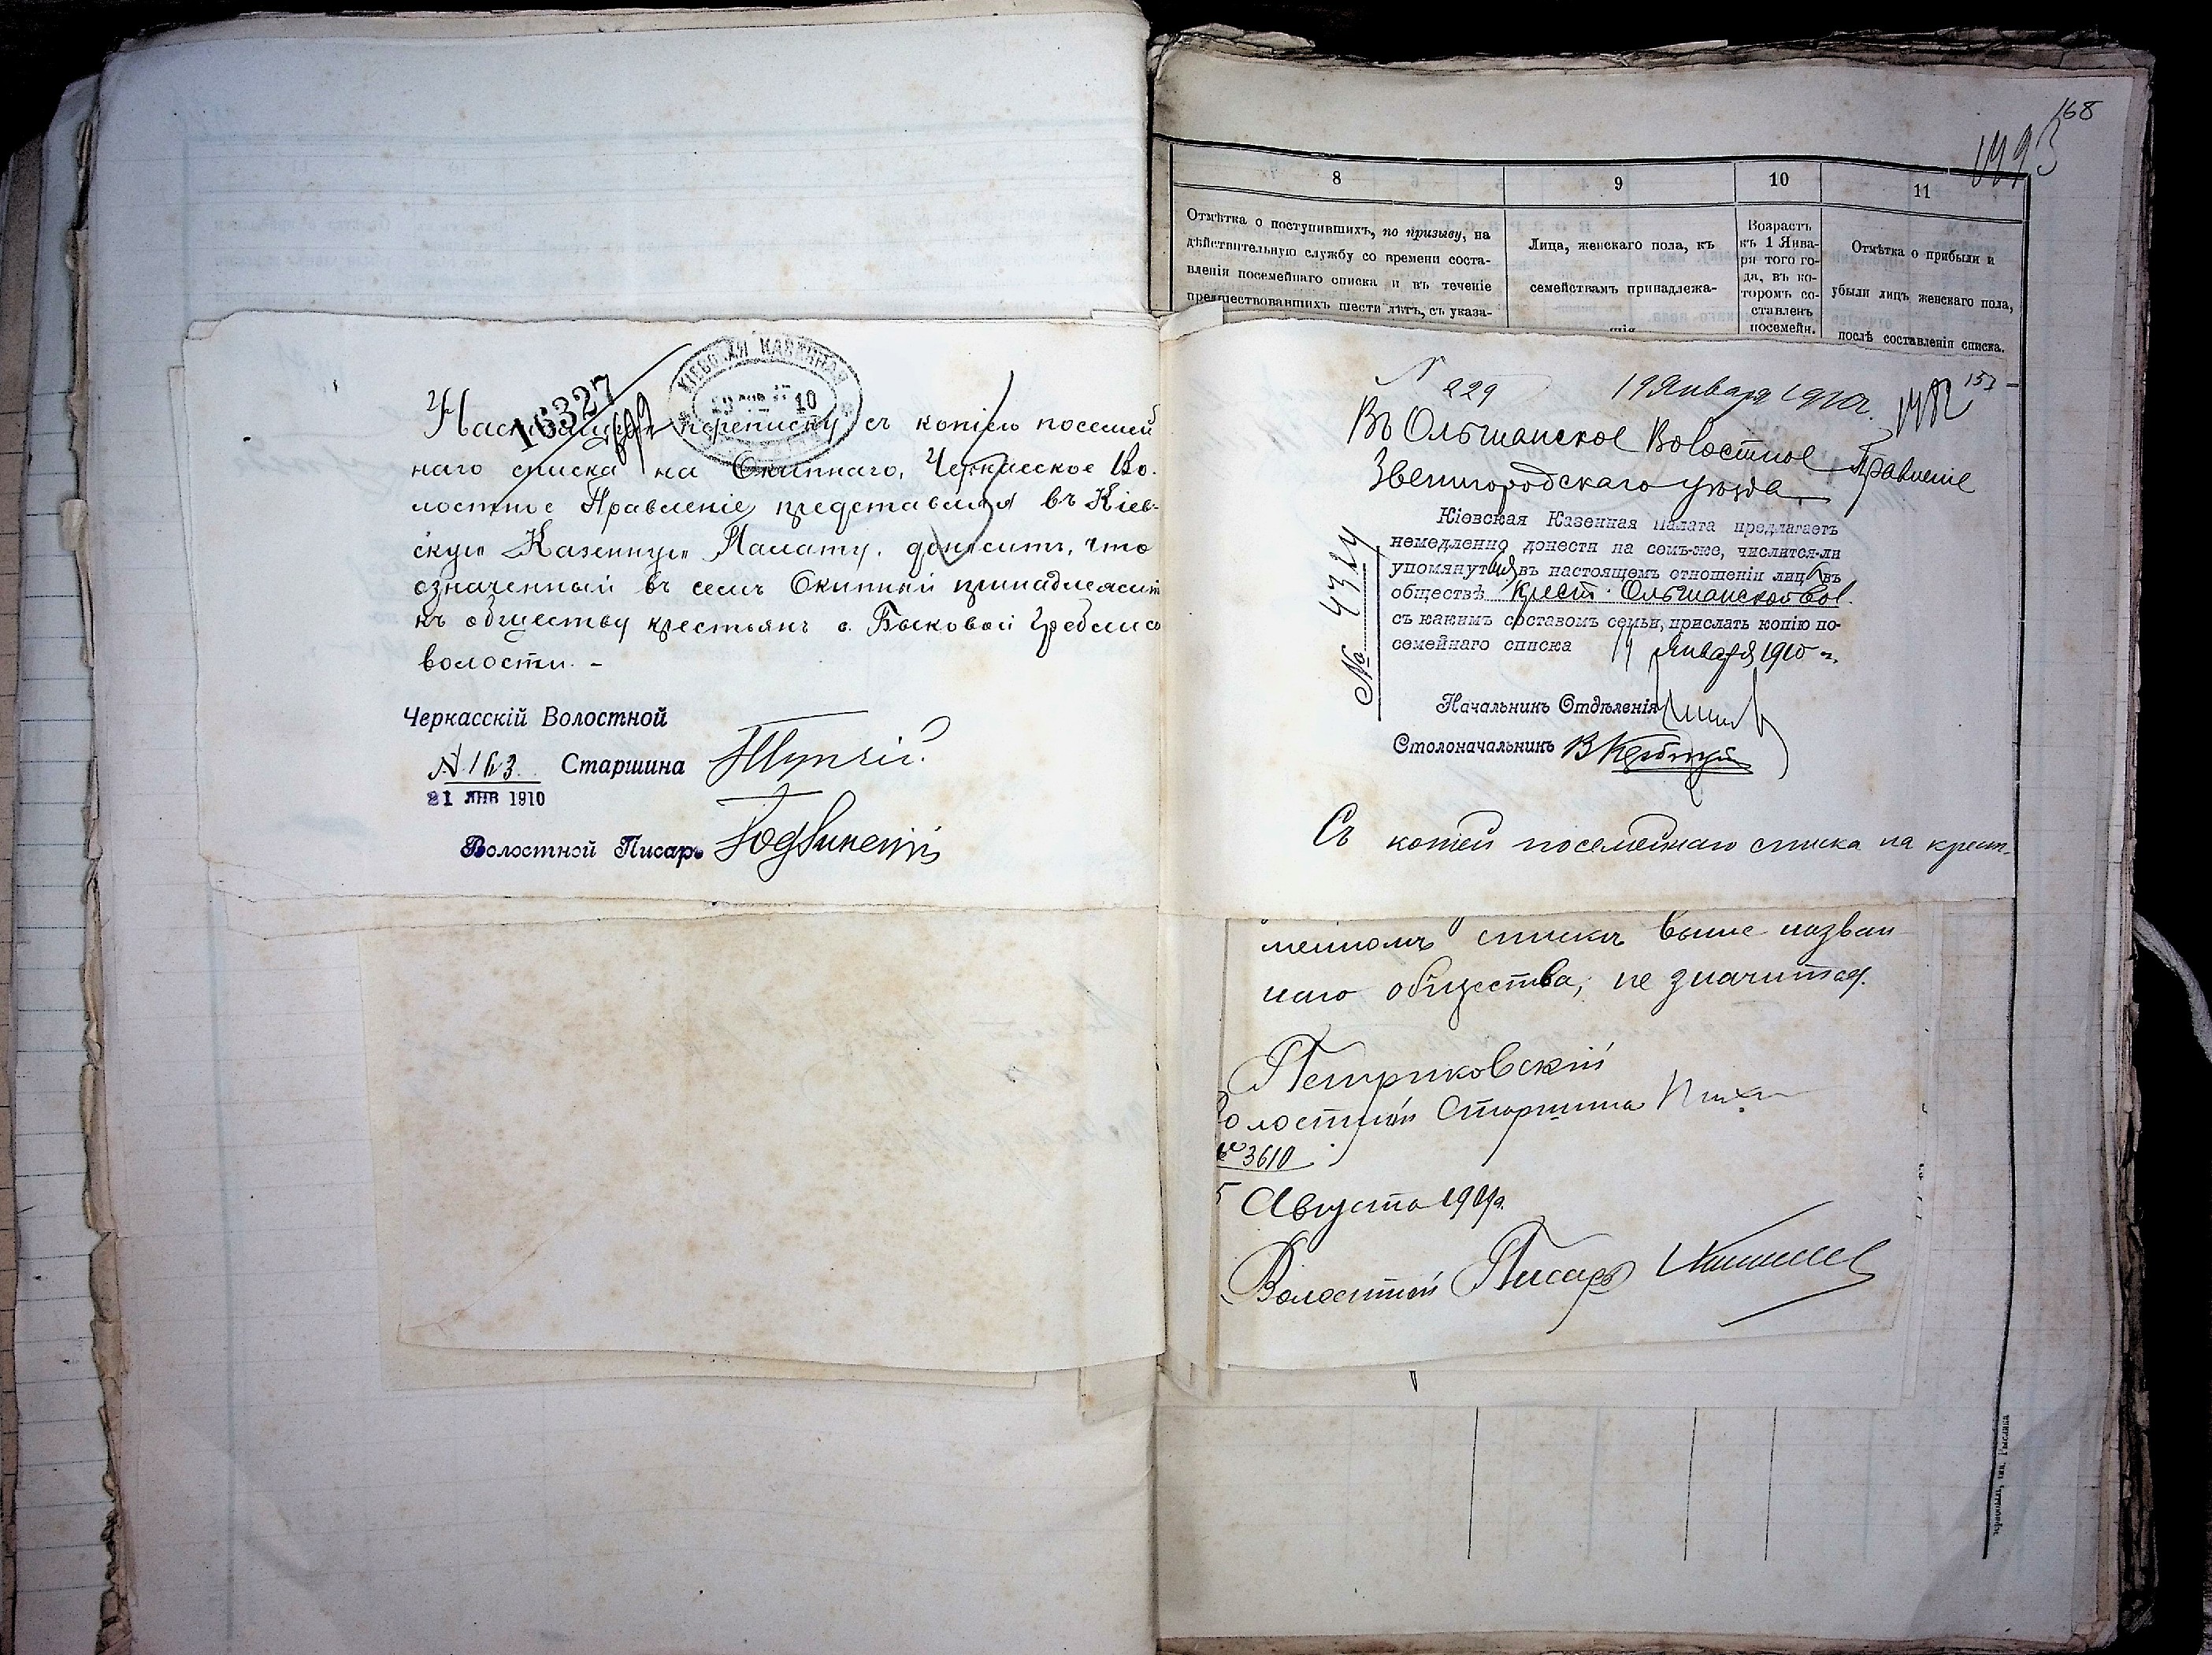 КІЕВСКАЯ КАЗЕННАЯ
10
16327
Настоящую переписку съ копіею посемей
наго списка на Скитнаго, Черкасское Во-
лостное Правленіе, представляя въ Кіев-
скую Казенную Палату, доноситъ, что
означенный въ семъ принадлежитъ
къ обществу крестьянъ с. Быковой Гребли
волости. –
Черкасскій Волостной
№ 163 Старшина
21 ЯНВ 1910
Волостной Писарь
168
8
9
10
11
Отмѣтка о поступившихъ, по призыву, на
дѣйствительную службу со времени соста-
вленія посемейнаго списка и въ теченіе
предшествовавшихъ шести лѣтъ, съ указа-
Лица, женскаго пола, къ
семействамъ принадлежа-
щія
Возрастъ
къ 1 Янва-
ря того го-
да, въ ко-
торомъ со-
ставленъ
посемейн.
Отмѣтка о прибыли и
убыли лицъ женскаго пола,
послѣ составленія списка.
№ 229 19 Января 1910 г.
Въ Ольшанское Волостное Правленіе
Звенигородскаго уѣзда
Кіевская Казенная Палата предлагаетъ
немедленно донести на семъ-же, числится-ли
упомянутый въ настоящемъ отношеніи лицо въ
обществѣ крест. Ольшанской вол.
съ какимъ составомъ семьи, прислать копію по-
семейнаго списка 14 Января 1910 г.
№ 4324
Начальникъ Отдѣленія
Столоначальникъ
Съ копіей посемейнаго списка на крест.
менномъ спискѣ выше назван
наго общества, не значится.
Петриковскій
Волостной Старшина
№ 3610
5 Августа 1909 г.
Волостной Писарь